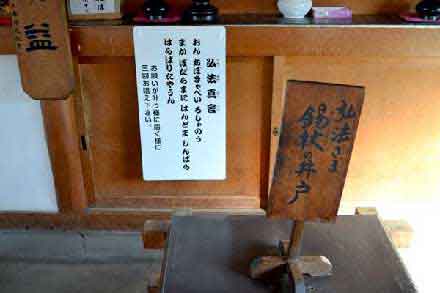 益
弘法真言
おん あぼきゃべい ろしゃのう
まか ぼだらまに はんどま じんばら
はらばりたやうん
お願いが叶う様に
三回お唱え下さい。
弘法さま
錫杖の井戸